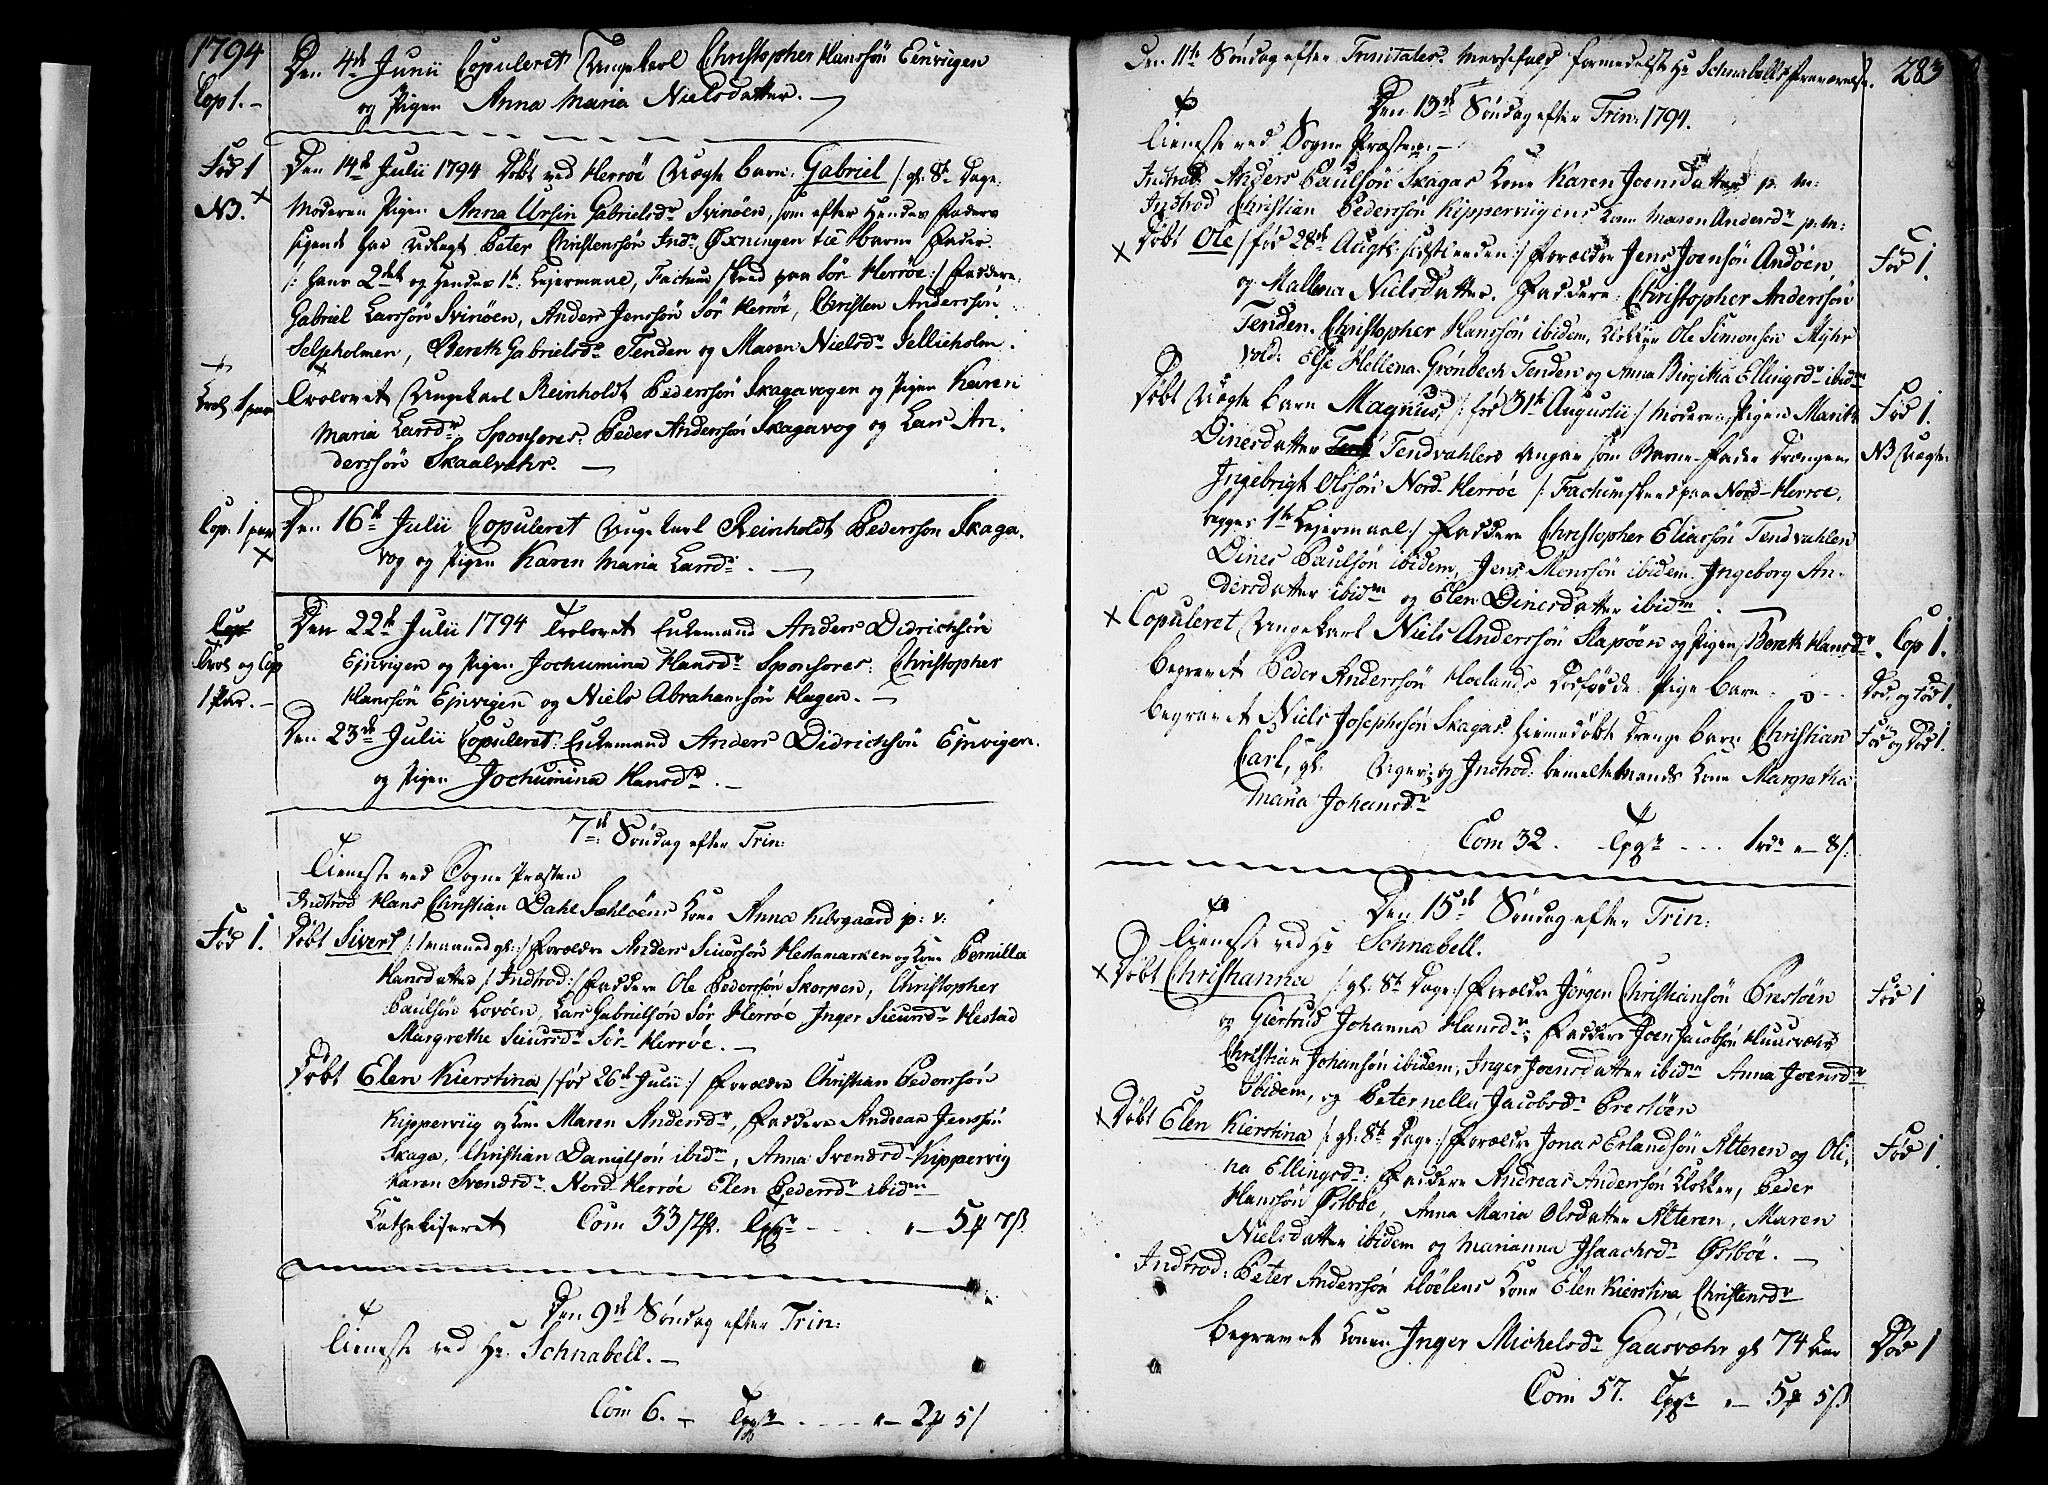 1794
Den 4de Junii Copuleret Ungekarl Christopher Hanssön Einvigen
Cop 1.
og Pigen Anna Maria Nielsdatter.
Fød 1
Den 14de Julii 1794 Döbt ved Herröe Uægte barn: Gabriel /: gl: 8te Dage:
NB.
Moderen Pigen Anna Ursin Gabrielsdr Svinöen, som efter Hendes Faders
sigende har udlagt Peter Christenssön Indr Øxningen til Barne Fader
/: Hans 2det og Hendes 1te Lejermaal, Factum skeed paa Sör Herröe :/ Faddere
Gabriel Larssön Svinöen, Anders Jenssön Sör Herröe, Christen Anderssön
Selseholmen, Bereth Gabrielsdr Tenden og Maren Nielsdr Jellieholm.
Trol 1 par
Trolovet Ungekarl Reinholdt Pederssön Skagavogen og Pigen Karen
Maria Larsdr Sponsores. Peder Anderssön Skagavog og Lars An-
derssön Skaalvæhr.
Cop. 1 par
Den 16de Julii Copuleret Ungekarl Reinholdt Pederssön Skaga-
vog og Pigen Karen Maria Larsdr.
Cop
Den 22de Julii 1794 Trolovet Enkemand Anders Didrichsön
Trol og Cop
Ejnvigen og Pigen Jochumina Hansdr Sponsores: Christopher
1 Par.
Hanssön Ejnvigen og Niels Abrahamsön Hagen.
Den 23de Julii Copuleret Enkemand Anders Didrichsön Ejnvigen
og Pigen Jochumina Hansdr.
7de Söndag efter Trin:
Tieneste ved Sogne Præsten
Indtrod Hans Christian Dahl Sæhlöens Kone Anna Kilsgaard p: v:
Fød 1.
Döbt Sivert /: 1 maaned gl: :/ Forældre Anders Siuersön Hestamarken og Kone Pernilla
Hansdatter /: Indtrod :/ Faddere Ole Pederssön Skorpen, Christopher
Paulsön Lovöen, Lars Gabrielsön Sör Herröe Inger Siuersdr Hestad
Margrethe Siuersdr Sör-Herröe.
Döbt Elen Kierstina /: fød 26de Julii :/ Forældre Christian Pederssön
Kippervig og Kone Maren Andersdr, Faddere Andreas Jenssön
Skaga, Christian Danielsön ibidm, Anna Svendsd Kippervig
Karen Svendsdr Nord Herröe Elen Pedersdr ibidm
Kathekiseret Com 33 Tpgr 5 7ß
Den 9de Söndag efter Trin:
Tieneste ved Hr Schnabell.
Com 6. Tpgr 2 5ß
Den 11te Söndag efter Trinitatis Messefald formedelst Hr Schnabells fraværelse.
283
Den 13de Söndag efter Trin: 1794.
Tieneste ved Sogne Præsten.
Indtrod Anders Paulsön Skagas Kone Karen Joensdatter p: m:
Indtrod Christian Pederssön Kippervigens Kone Maren Andersdr p: m:
Döbt Ole /: fød 28de Augti sidstleeden :/ Forældre Jens Joensön Andöen
Fød 1.
og Mallena Nielsdatter. Faddere: Christopher Anderssön
Tenden. Christopher Hanssön ibidem, Klokker Ole Simonsön Myhr
vold: Else Hellena Grönbech Tenden og Anna Birgitha Ellingsdr ibidm
Döbt Uægte barn Magnus /: fød 31te Augustii :/ Moderen Pigen Marith
Fød 1.
Dinesdatter Tendvahlen Angav som Barne Fader Drengen
NB Uægte
Ingebrigt Olssön Nord-Herröe /: Factum skeed paa Nord-Herröe,
begges 1te Lejermaal :/ Faddere Christopher Eliassön Tendvahlen
Dines Paulsön ibidem, Jens Monssön ibidem Ingeborg An-
dersdatter ibidm og Elen Dinesdatter ibidm.
Copuleret Ungekarl Niels Anderssön Slapöen og Pigen Bereth Hansdr.
Cop 1.
Begravet Peder Anderssön Holands Dödfödde Pige barn.
Död og Fød 1.
Begravet Niels Josephsön Skagas hiemedöbte Drenge barn Christian
Fød og Død 1.
Carl, gl. Uger; og Indtrod: bemeltemands Kone Margretha
Maria Johansdr
Com 32. Tpgr 1rdr 8ß
Den 15de Söndag efter Trin:
Tieneste ved Hr Schnabell.
Döbt Christianna /: gl: 8te Dage :/ Forældre Jörgen Christiansön Prestöen
Fød 1
og Giertrud Johanna Hansdr; Faddere Joen Jacobsön Huusvæhr
Christian Johansön ibidem, Inger Joensdatter ibidm Anna Joensdr
Ibidem, og Peternella Jacobsdr Prestöen
Döbt Elen Kierstina /: gl: 8te Dage :/ Forældre Jonas Erlandsön Alteren og Oli-
Fød 1.
na Ellingsdr: Faddere Andreas Anderssön Klokker, Peder
Hanssön Østböe, Anna Maria Olsdatter Alteren, Maren
Nielsdatter ibidem og Marianna Isaachsdr Østböe.
Indtrod: Peter Anderssön Höelens Kone Elen Kierstina Christensdr
Begravet Konen Inger Michelsdr Gaasvæhr gl 74 Aar
Død 1
Com 57. Tpgr 5 5ß